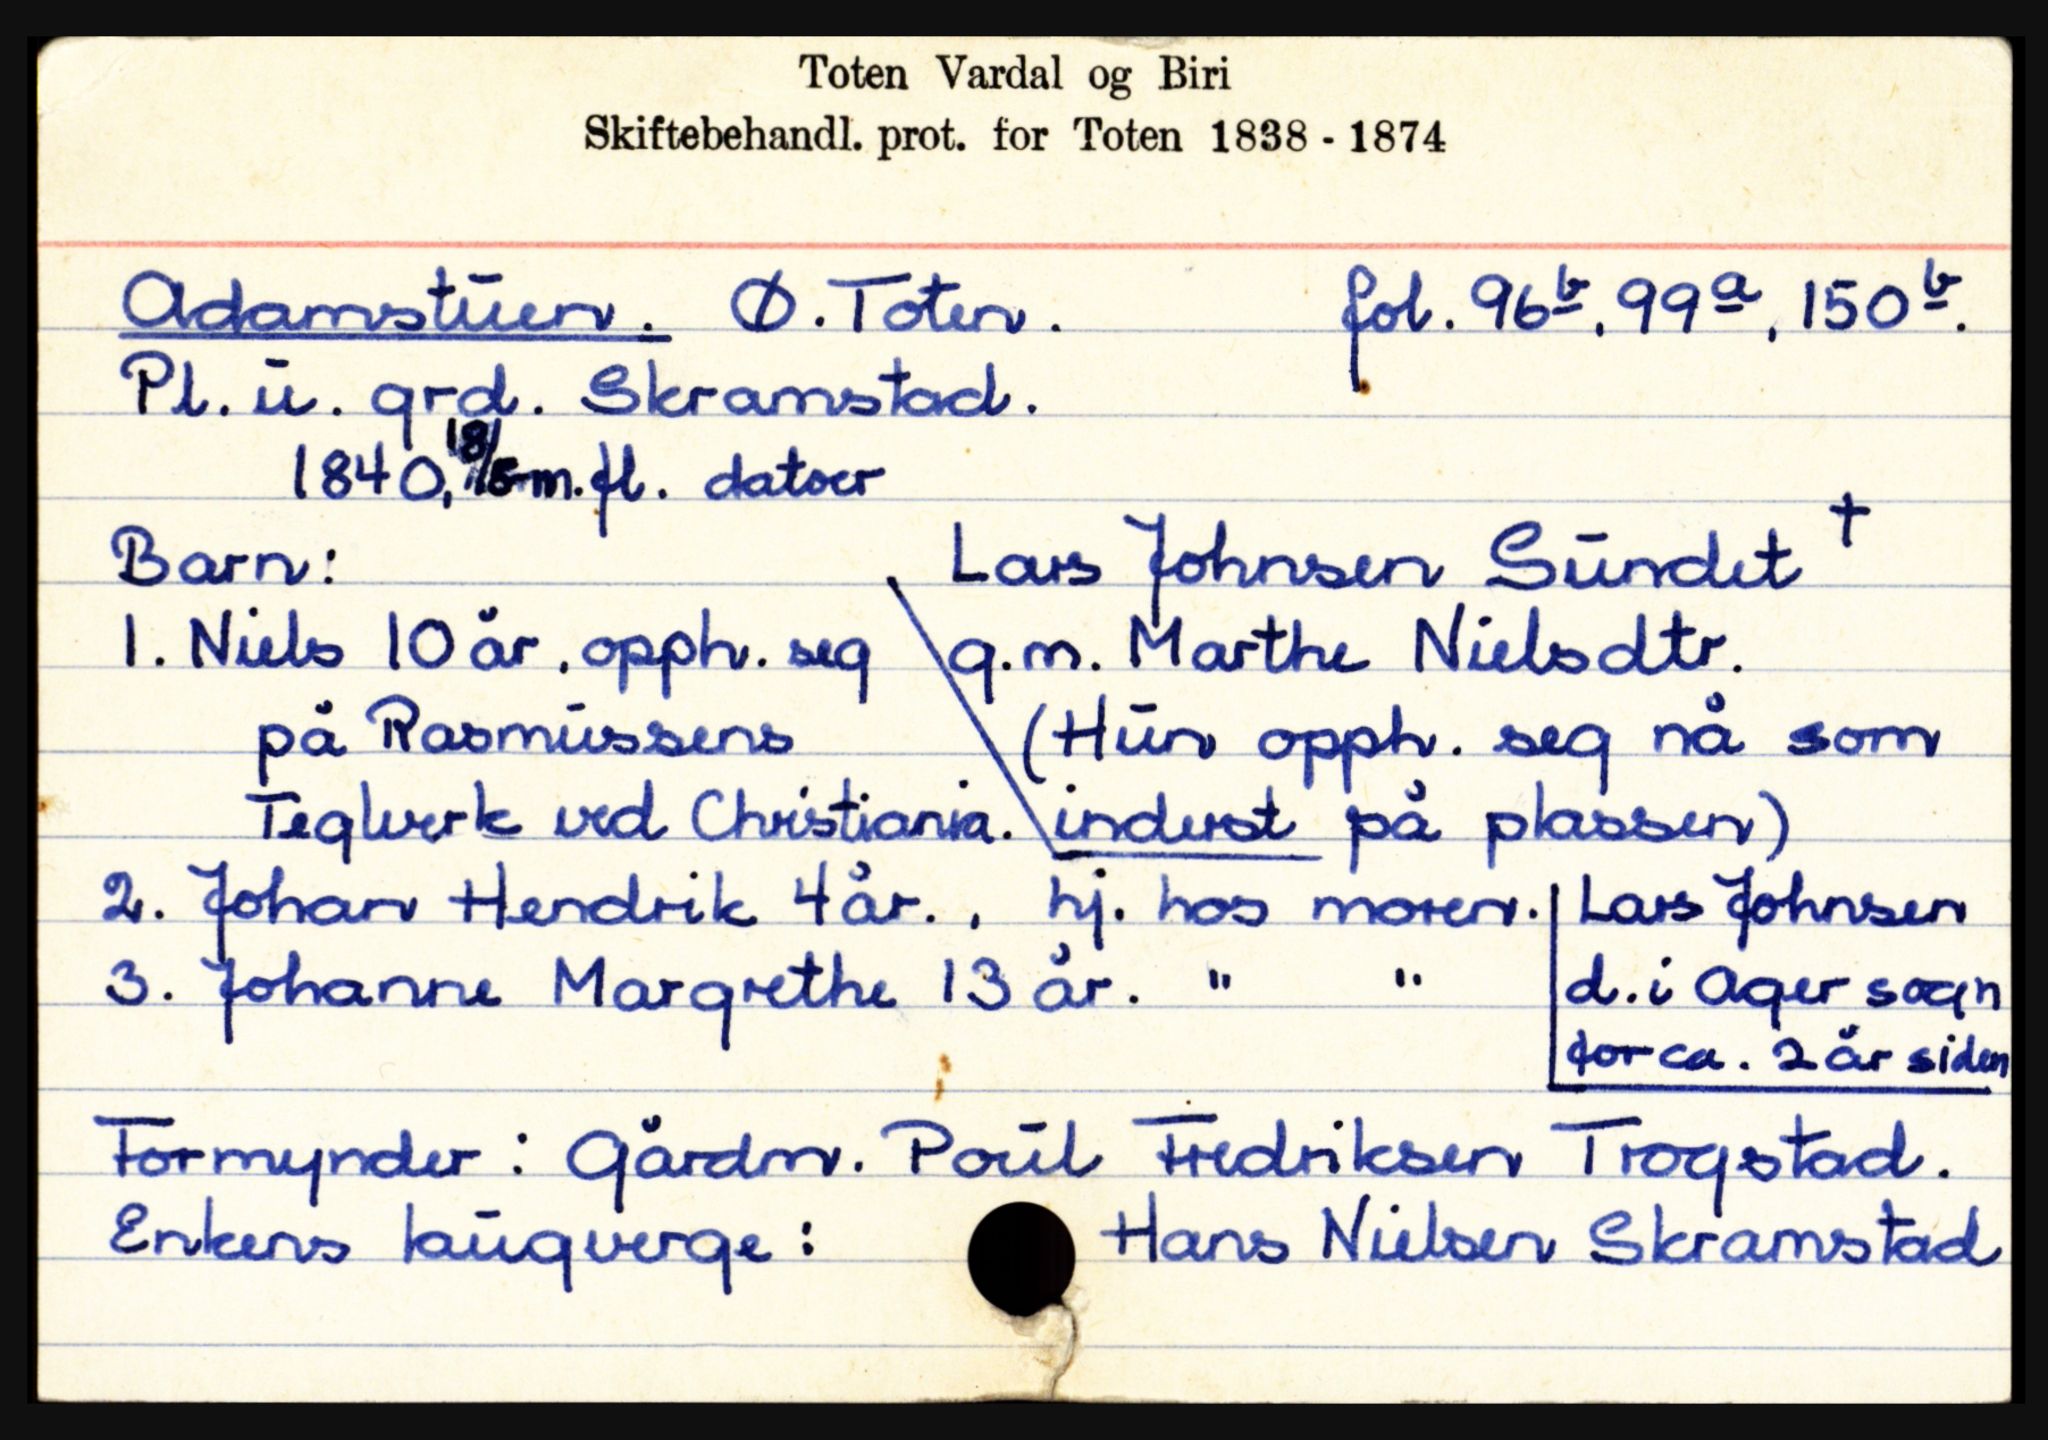 Toten Vardal og Biri
Skiftebehandl. prot. for Toten 1838 - 1874
Adamstuen. Ø. Toten. fol. 96b, 99a, 150b.
Pl. u. grd. Skramstad.
1840, 18/5 m.fl. datoer
Barn: Lars Johnsen Sundet †
1. Niels 10 år, opph. seg g.m. Marthe Nielsdtr.
på Rasmussens (Hun opph. seg nå som
Teglverk ved Christiania. inderst på plassen)
2. Johan Hendrik 4 år., hj. hos moren. Lars Johnsen
3. Johanne Margrethe 13 år. " " d. i Ager sogn
for ca. 2 år siden
Formynder: Gårdm. Poul Fredriksen Trogstad.
Enkens laugverge: Hans Nielsen Skramstad